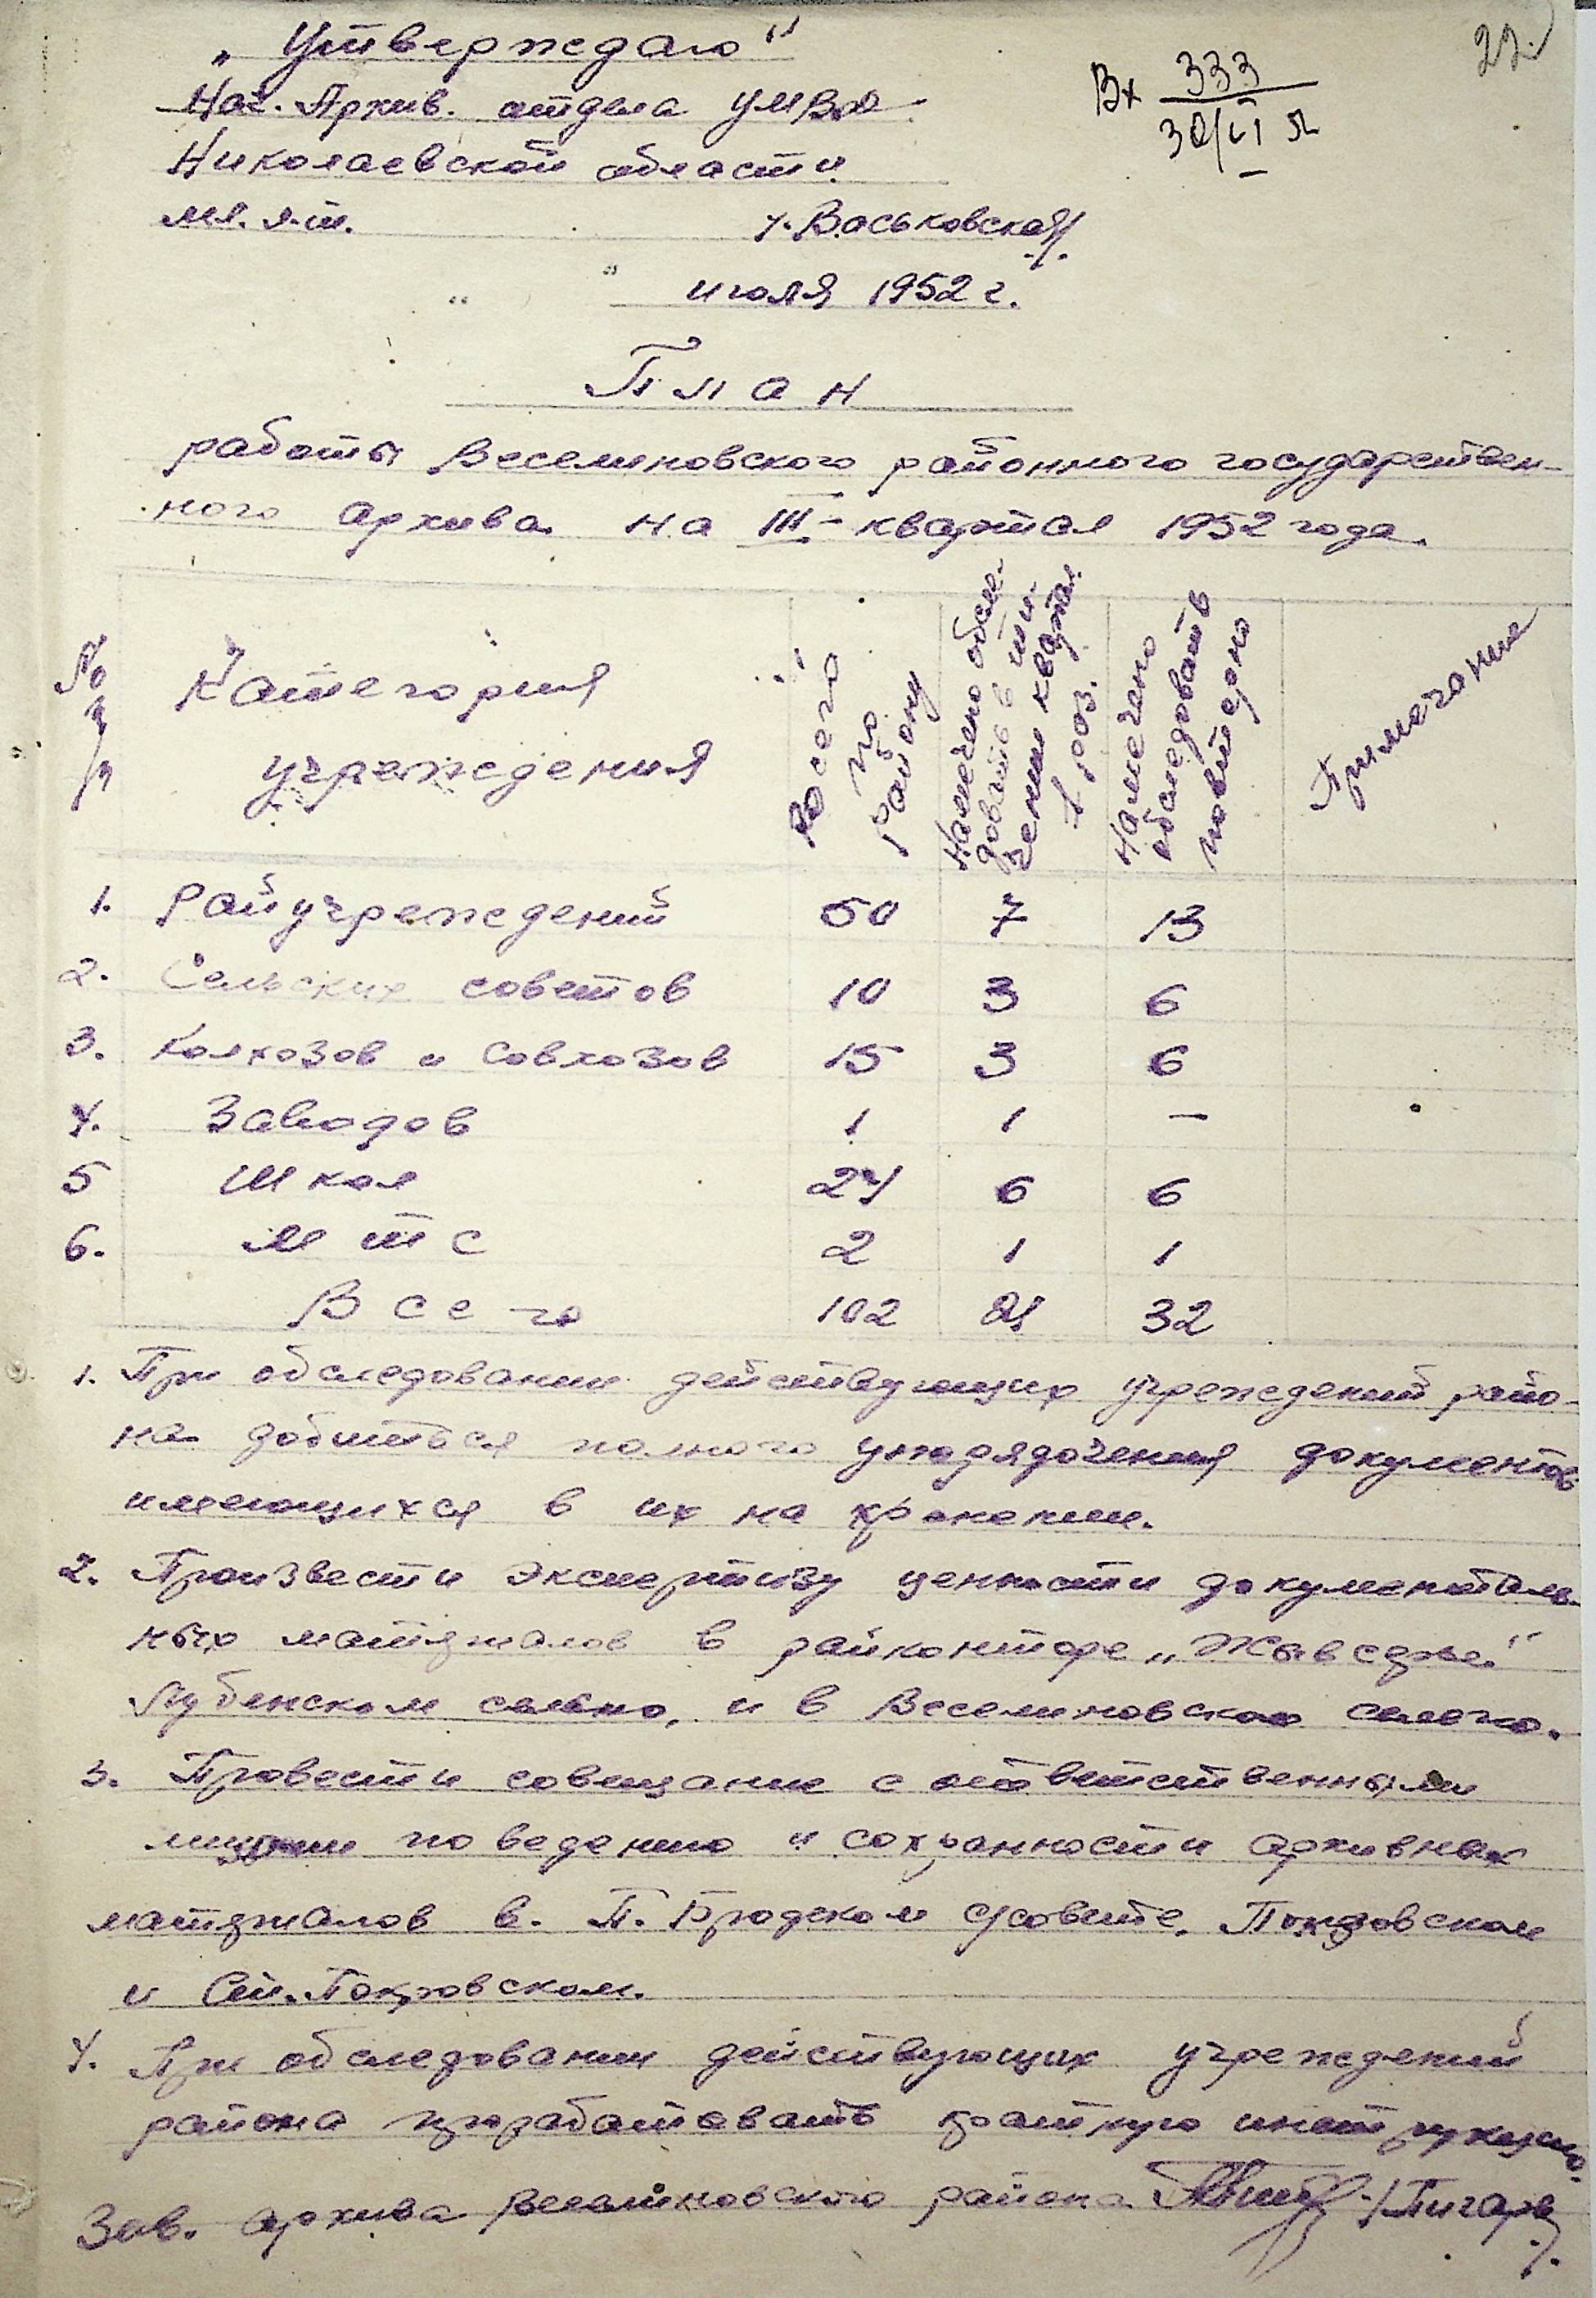 22.
Вх 333
30/VI 52
„Утверждаю"
Нач. Архив. отдела УМВД
Николаевской области
мл. л-т. /. Васьковская/.
" " июля 1952 г.
План
работы Веселиновского районного государствен-
ного архива на III - квартал 1952 года.
№ п/п
Категория учреждения
Всего по району
Намечено обсле-
довать в те-
чении кварта.
1 раз.
Намечено обследовать повторно
Примечание
1. Райучреждений 50 7 13
2. Сельских советов 10 3 6
3. Колхозов и Совхозов 15 3 6
4. Заводов 1 1 —
5 Школ 24 6 6
6. МТС 2 1 1
Всего 102 21 32
1. При обследовании действующих учреждений райо-
на добиться полного упорядочения документов
имеющихся в их на хранении.
2. Произвести экспертизу ценности документаль-
ных материалов в райконторе „Живсырье"
сельпо, и в Веселиновском сельпо.
3. Провести совещание с ответственными
лицами по ведению и сохранности архивных
материалов в. П. Бродском с/совете,
и Ст. Покровском.
4. При обследовании действующих учреждений
района проработать краткую инструкцию.
Зав. архива Веселиновского района /Пигарь/.